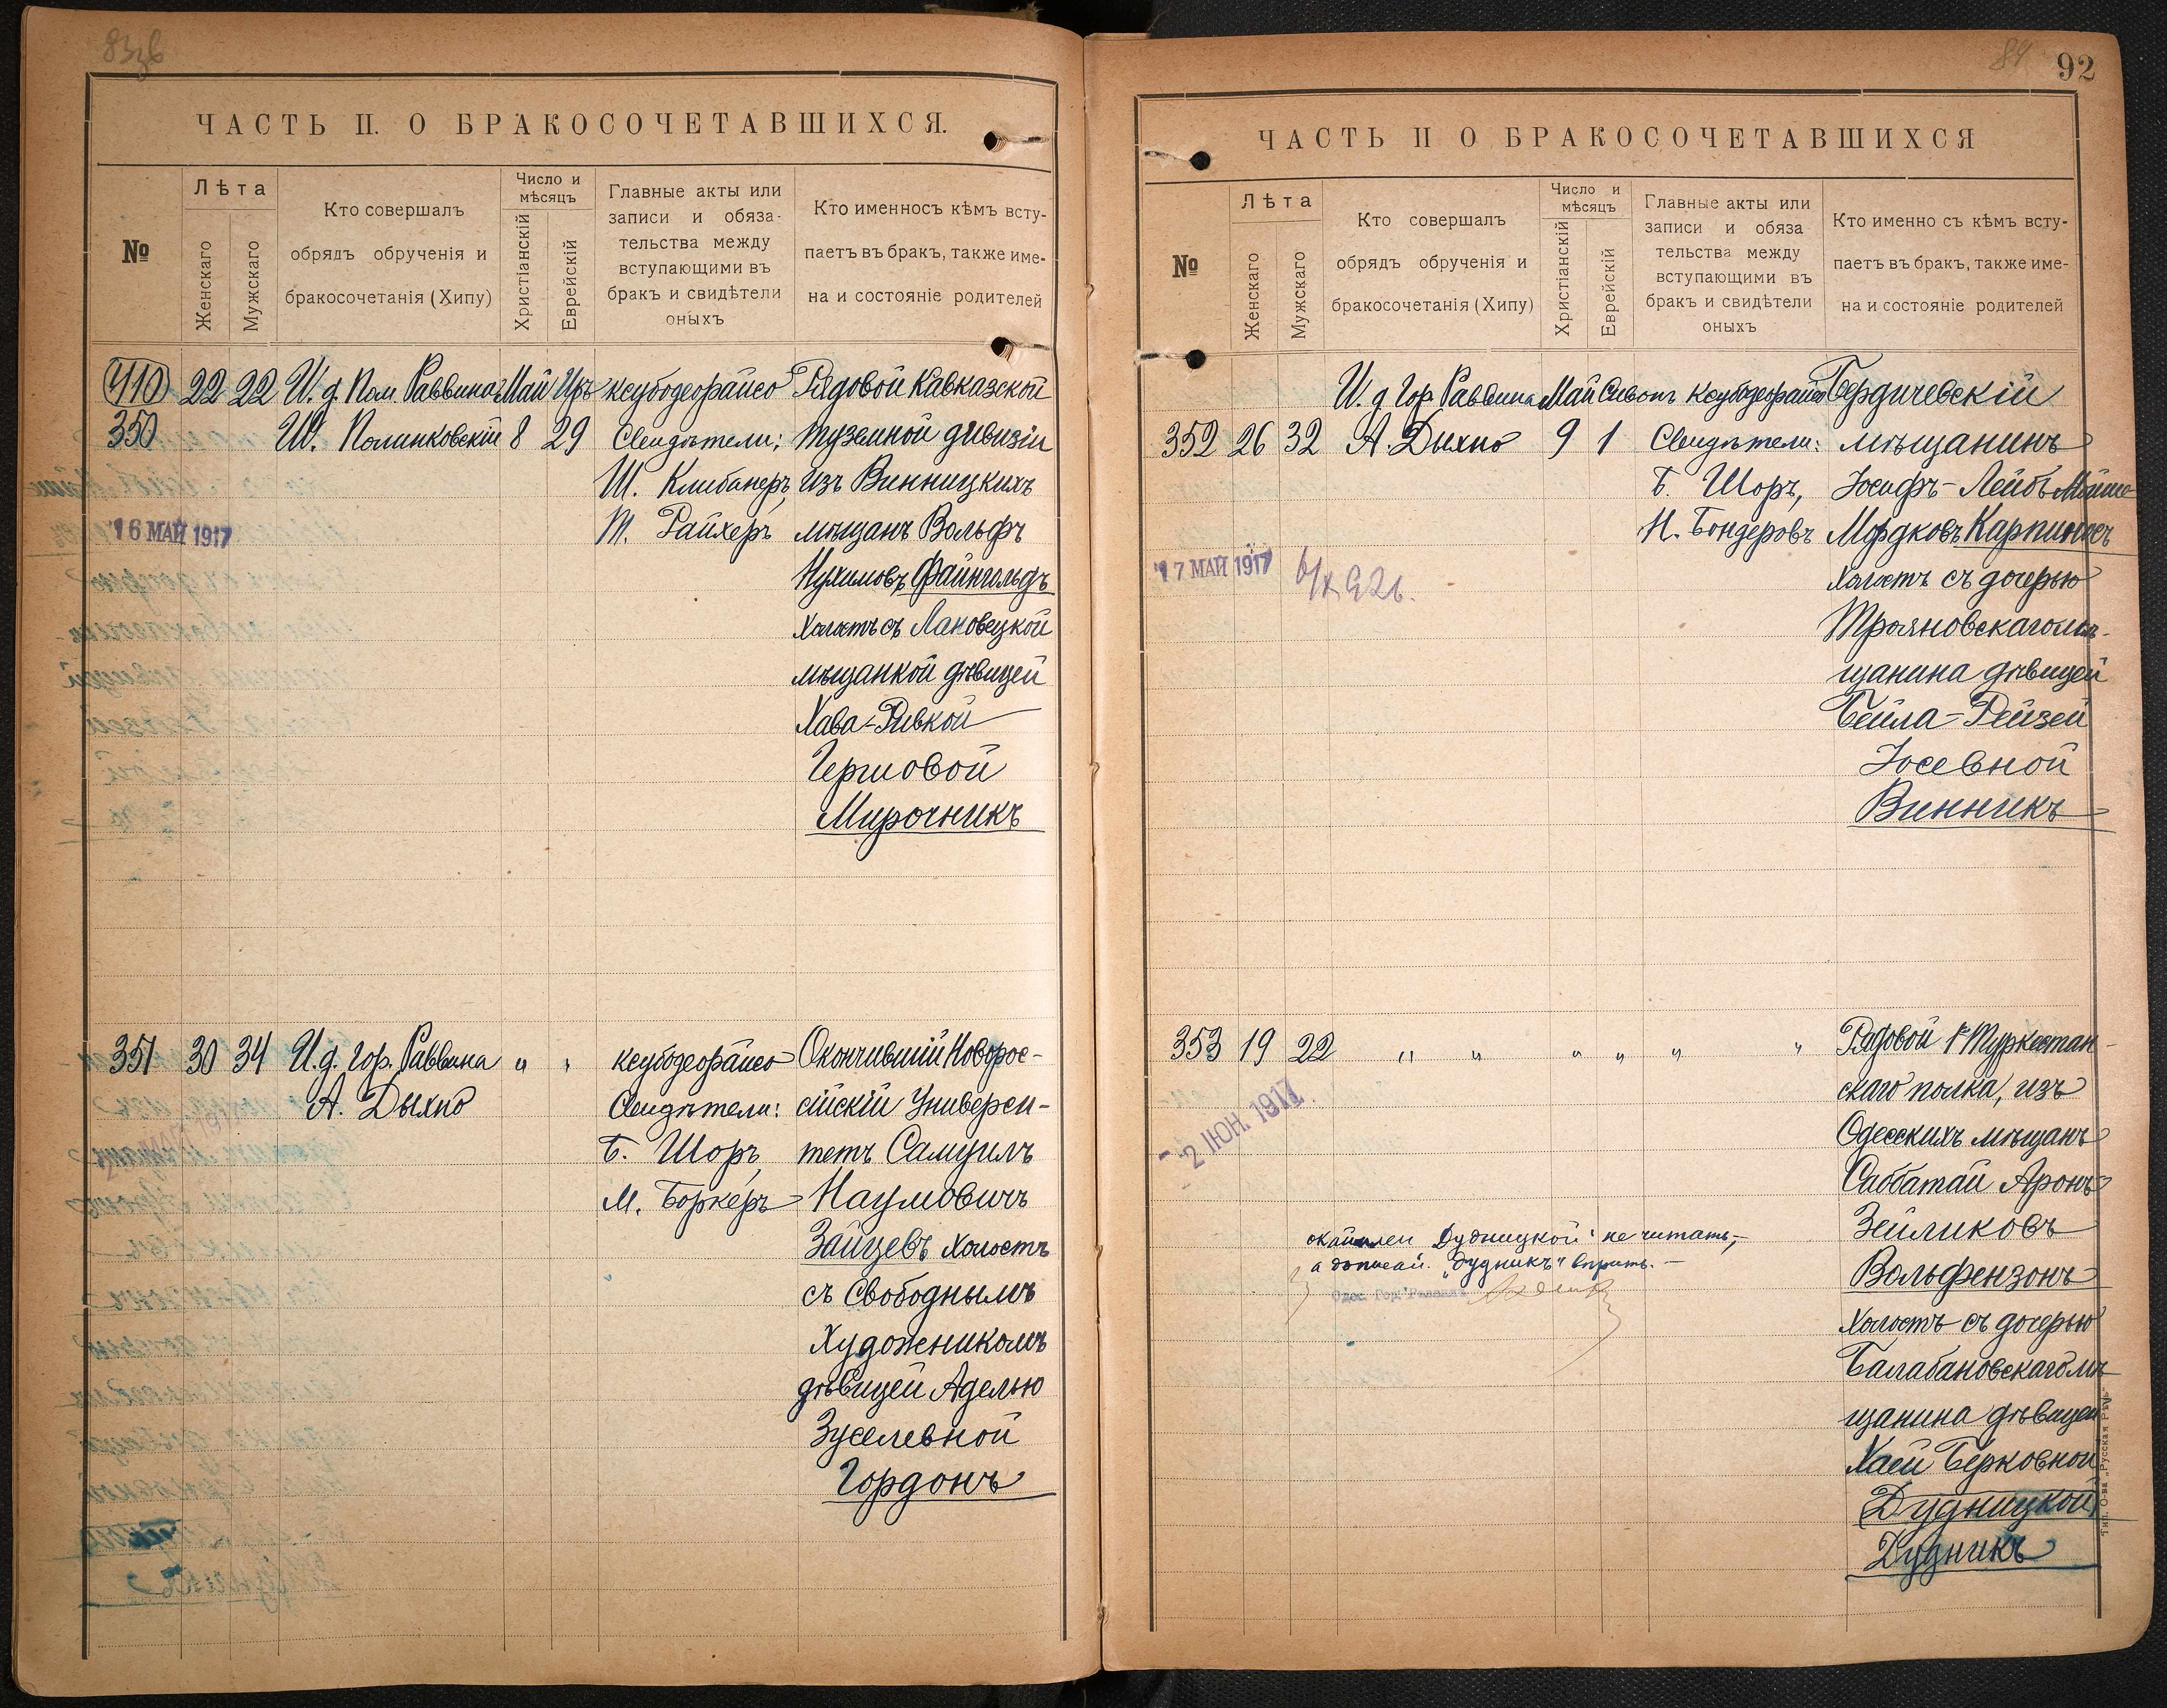 83об
ЧАСТЬ II. О БРАКОСОЧЕТАВШИХСЯ.
№
Лѣта
Женскаго
Мужскаго
Кто совершалъ
обрядъ обрученія и
бракосочетанія (Хипу)
Число и
мѣсяцъ
Христіанскій
Еврейскій
Главные акты или
записи и обяза-
тельства между
вступающими въ
бракъ и свидѣтели
оныхъ
Кто именносъ кѣмъ всту-
паетъ въ бракъ, также име-
на и состояніе родителей
410 22 22 И. д. Пом. Раввина Май Іяръ ксубодеорайсо Рядовой Кавказской
350 Ш. Полинковскій 8 29 Свидѣтели: туземной дивизіи
Ш. Клибанеръ, изъ Винницкихъ
16 МАЙ 1917
Т. Райхеръ мѣщанъ Вольфъ
Нухимовъ Файнгольдъ
холостъ съ Лановецкой
мѣщанкой дѣвицей
Хава-Ривкой
Гершовой
Мирочникъ
351 30 34 И. д. Гор. Раввина " " ксубодеорайсо Окончившій Новорос-
А. Дыхно Свидѣтели: сійскій Универси-
Б. Шоръ, тетъ Самуилъ
М. Боркеръ Наумовичъ
Зайцевъ холостъ
съ Свободнымъ
Художникомъ
дѣвицей Аделью
Зуселевной
Гордонъ
84
92
ЧАСТЬ II О БРАКОСОЧЕТАВШИХСЯ
№
Лѣта
Женскаго
Мужскаго
Кто совершалъ
обрядъ обрученія и
бракосочетанія (Хипу)
Число и
мѣсяцъ
Христіанскій
Еврейскій
Главные акты или
записи и обяза
тельства между
вступающими въ
бракъ и свидѣтели
оныхъ
Кто именно съ кѣмъ всту-
паетъ въ бракъ, также име-
на и состояніе родителей
И. д. Гор. Раввина Май Сивонъ ксубодеорайсо Бердичевскій
352 26 32 А. Дыхно 9 1 Свидѣтели: мѣщанинъ
Б. Шоръ, Іосифъ-Лейбъ Мойше
Н. Бондеровъ Мордковъ Карпиносъ
17 МАЙ 1917
холостъ съ дочерью
Трояновскаго мѣ-
щанина дѣвицей
Бейла-Рейзей
Іосевной
Винникъ
353 19 22 " " " " " " Рядовой 1 Туркестан-
скаго полка, изъ
2 ІЮН. 1917
Одесскихъ мѣщанъ
Саббатай Аронъ
Зейликовъ
Вольфензонъ
холостъ съ дочерью
Балабановскаго мѣ-
щанина дѣвицей
Хаей Берковной
(Дудницкой)
Дудникъ
Дудницкой" не читать,
а "Дудникъ" вѣрить.
Одес. Гор. Раввинъ
Тип. О-ва „Русская Рѣчь"